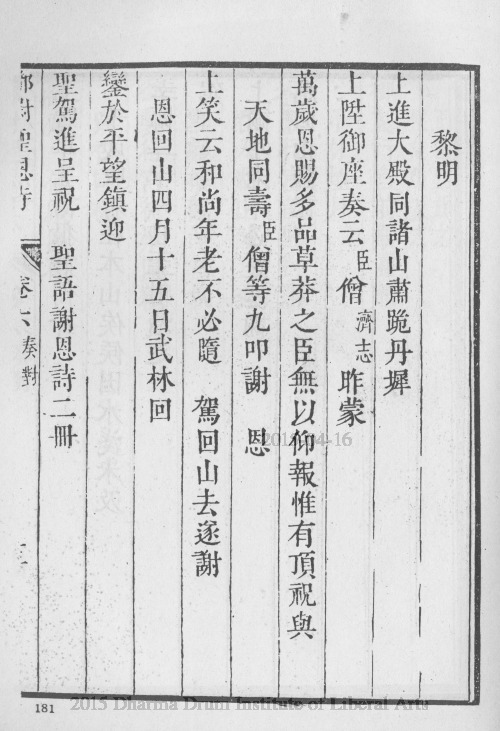 黎明
上進大殿同諸山肅跪丹墀
上陞御座奏云臣僧濟志昨蒙
萬歲恩賜多品草莽之臣無以仰報惟有頂祝與
天地同壽臣僧等九叩謝　恩
上笑云和尚年老不必隨　駕回山去遂謝
恩回山四月十五日武林回
鑾於平望鎮迎
聖駕進呈祝　聖語謝恩詩二冊
聖恩寺　卷六奏對
181
2019-04-16
2015 Dharma Drum Institute of Liberal Arts